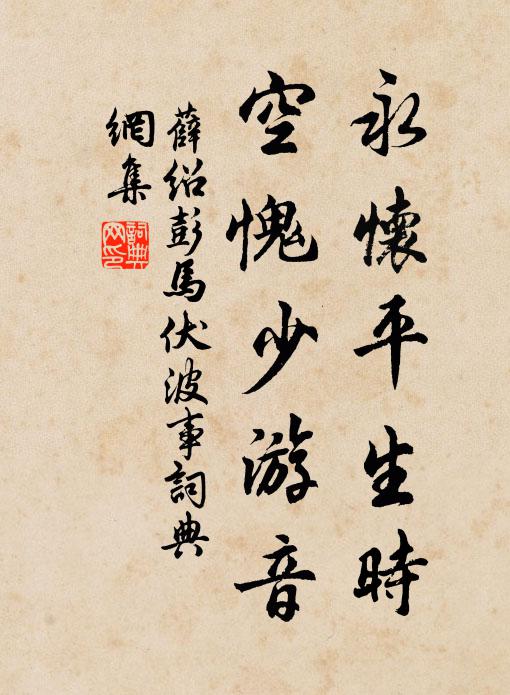 永懷平生時
空愧少游音
薛紹彭馬伏波事詞典
網集
詞典
网印